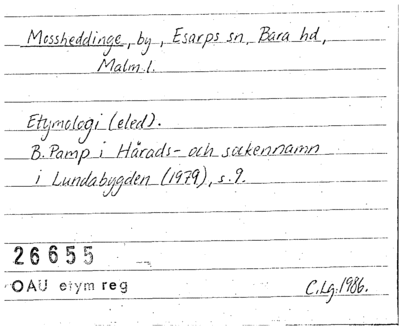 Mossheddinge, by, Esarps sn, Bara hd,
Malm.l.
Etymologi (eled).
B. Pamp i Härads- och sockennamn
i Lundabygden (1979), s. 9.
26655
OAU etym reg
C.Lg. 1986.